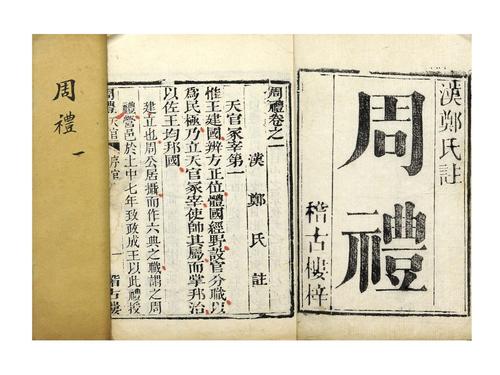 漢鄭氏註
周禮
稽古樓梓
周禮卷之一
漢 鄭氏註
天官冢宰第一
惟王建國辨方正位體國經野設官分職以
為民極乃立天官冢宰使帥其屬而掌邦治
以佐王均邦國
建立也周公居攝而作六典之職謂之周
禮營邑於土中七年致政成王以此禮授
周禮 天官 序官 一 稽古樓
周禮 一